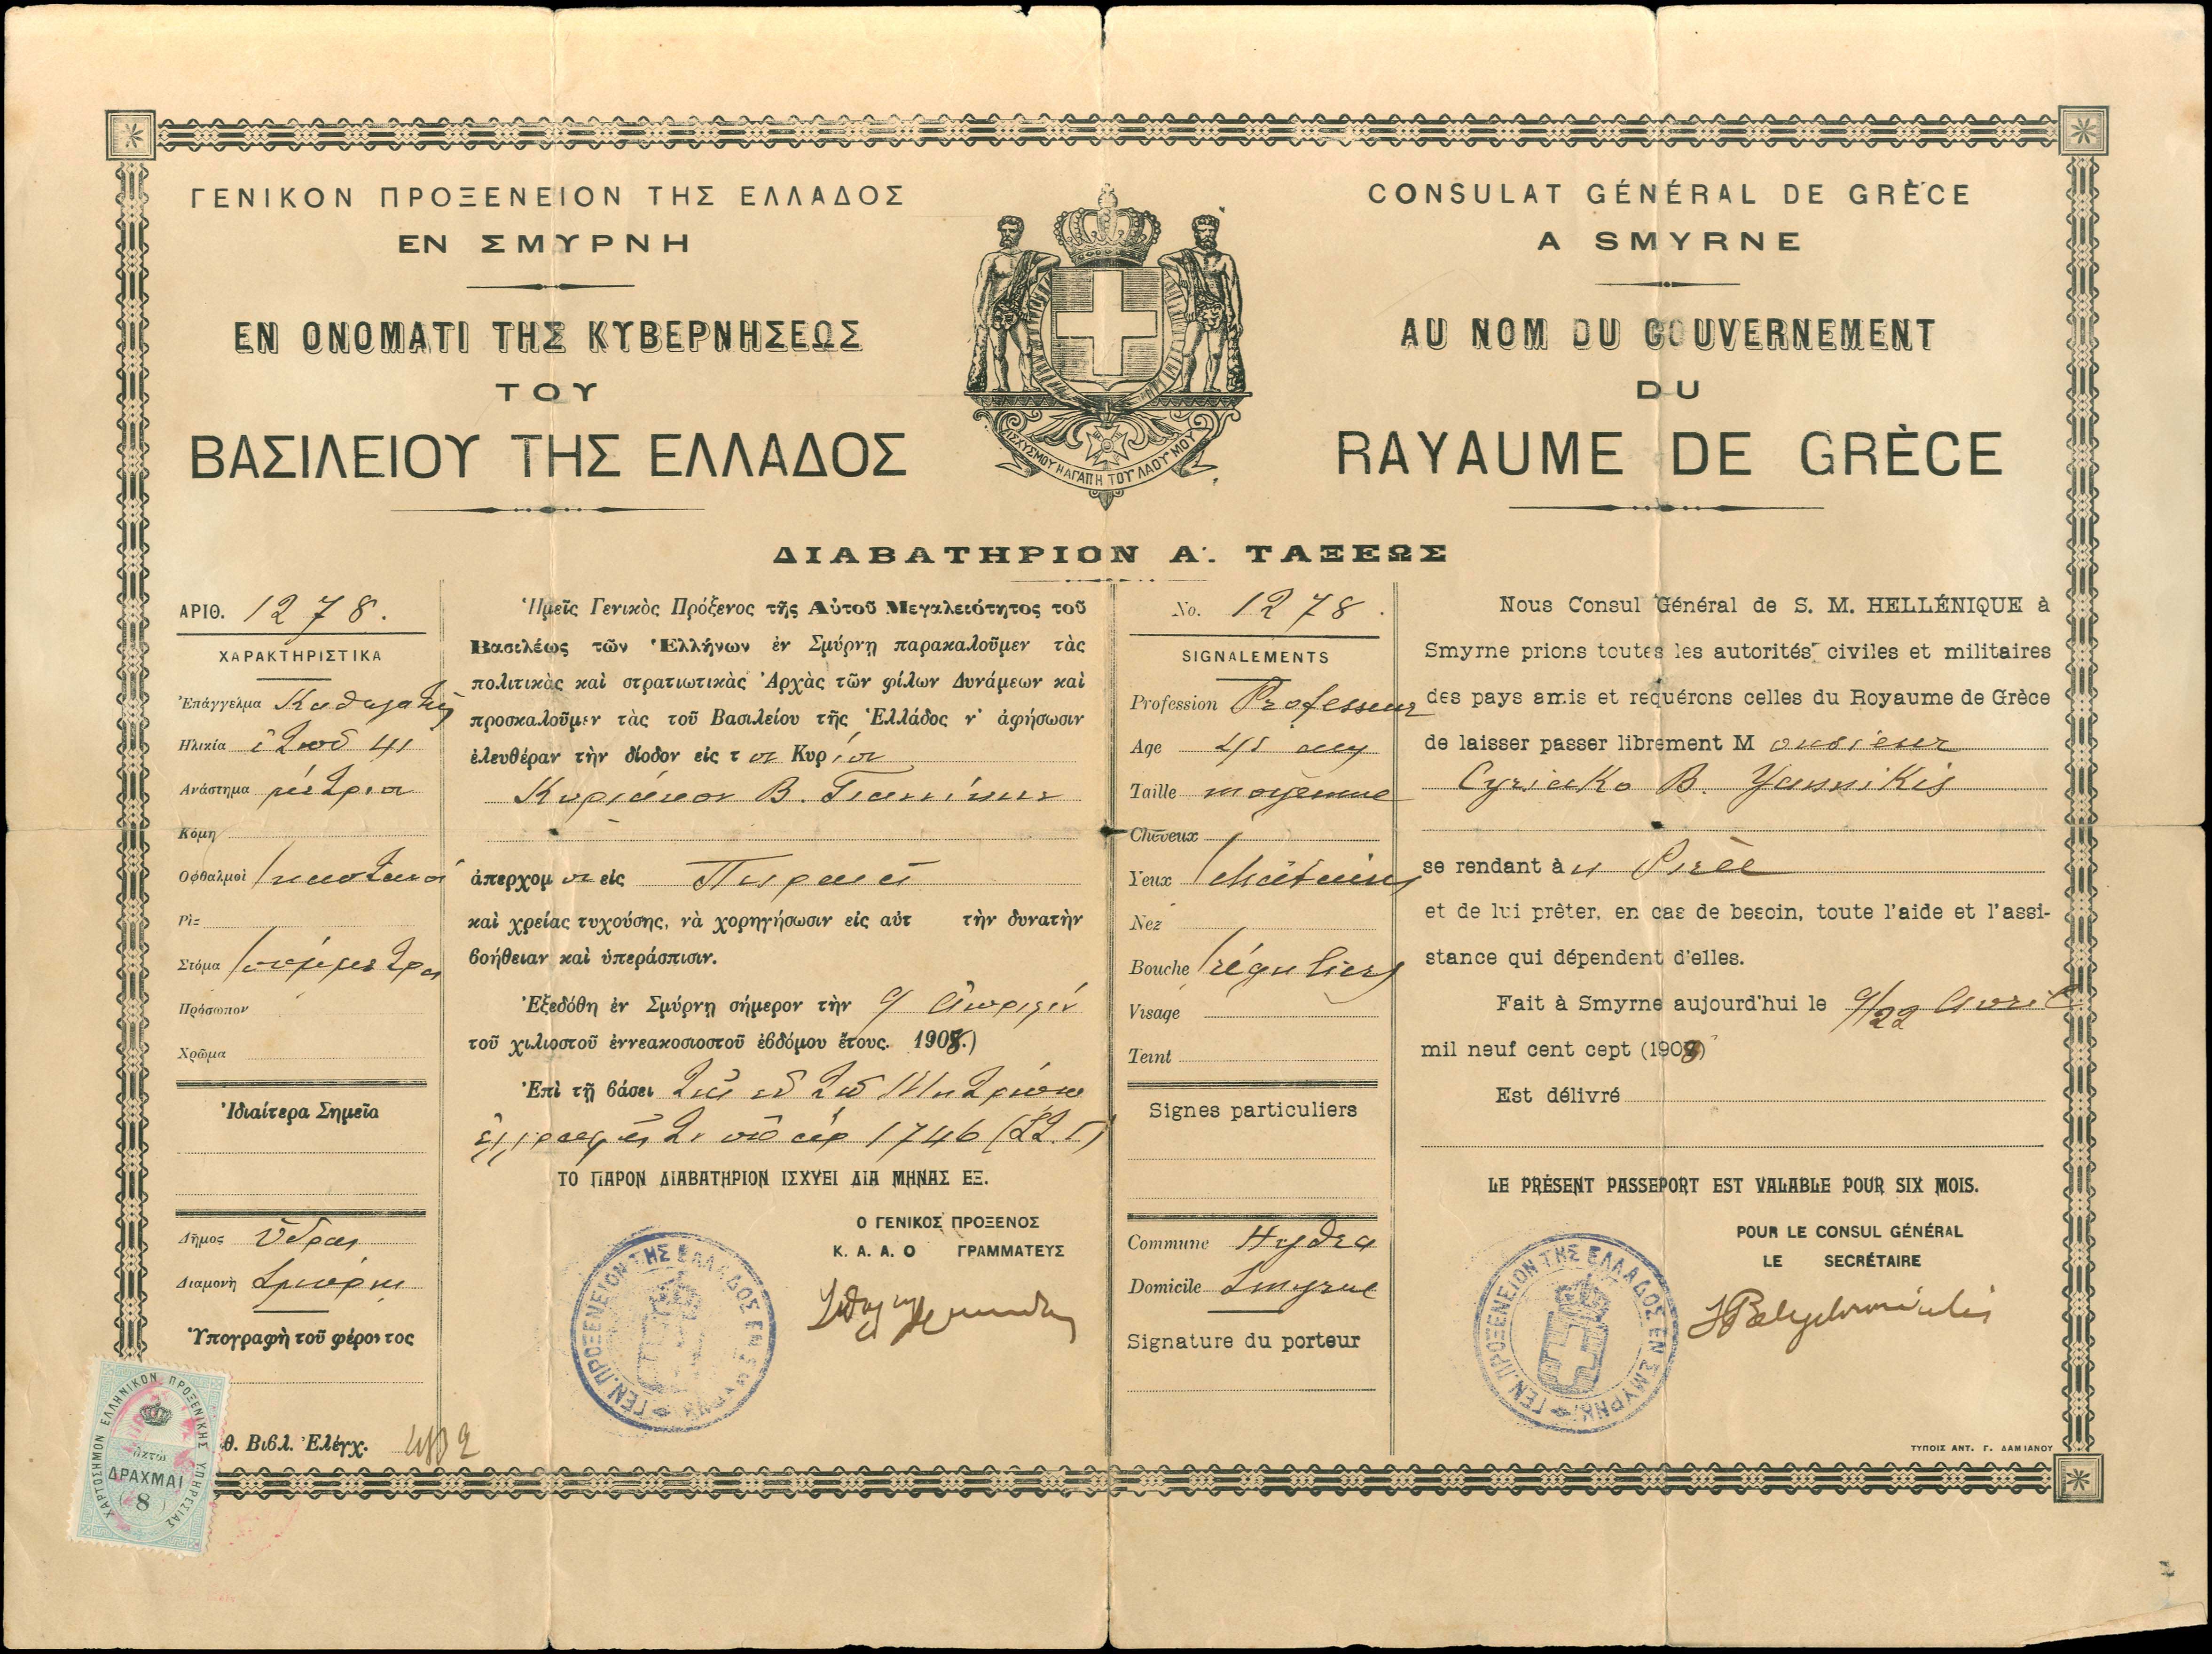 ΓΕΝΙΚΟΝ ΠΡΟΞΕΝΕΙΟΝ ΤΗΣ ΕΛΛΑΔΟΣ
ΕΝ ΣΜΥΡΝΗ
ΕΝ ΟΝΟΜΑΤΙ ΤΗΣ ΚΥΒΕΡΝΗΣΕΩΣ
ΤΟΥ
ΒΑΣΙΛΕΙΟΥ ΤΗΣ ΕΛΛΑΔΟΣ
ΙΣΧΥΣ ΜΟΥ Η ΑΓΑΠΗ ΤΟΥ ΛΑΟΥ ΜΟΥ
CONSULAT GÉNÉRAL DE GRÈCE
A SMYRNE
AU NOM DU GOUVERNEMENT
DU
RAYAUME DE GRÈCE
ΔΙΑΒΑΤΗΡΙΟΝ Α΄. ΤΑΞΕΩΣ
ΑΡΙΘ. 1278.
ΧΑΡΑΚΤΗΡΙΣΤΙΚΑ
Ἐπάγγελμα Καθηγητὴς
Ἡλικία ἐτῶν 41
Ἀνάστημα μέτριον
Κόμη
Οφθαλμοὶ καστανοὶ
Ρὶς
Στόμα σύμμετρα
Πρόσωπον
Χρῶμα
Ἰδιαίτερα Σημεῖα
Δῆμος Ὕδρας
Διαμονὴ Σμύρνη
Ὑπογραφὴ τοῦ φέροντος
θ. Βιβλ. Ἐλέγχ.
ΧΑΡΤΟΣΗΜΟΝ ΕΛΛΗΝΙΚΟΝ ΠΡΟΞΕΝΙΚΗΣ ΥΠΗΡΕΣΙΑΣ
ὀκτὼ
ΔΡΑΧΜΑΙ
8
Ἡμεῖς Γενικὸς Πρόξενος τῆς Αὐτοῦ Μεγαλειότητος τοῦ
Βασιλέως τῶν Ἑλλήνων ἐν Σμύρνῃ παρακαλοῦμεν τὰς
πολιτικὰς καὶ στρατιωτικὰς Ἀρχὰς τῶν φίλων Δυνάμεων καὶ
προσκαλοῦμεν τὰς τοῦ Βασιλείου τῆς Ἑλλάδος ν' ἀφήσωσιν
ἐλευθέραν τὴν δίοδον εἰς τὸν Κύριον
Κυριάκον Β. Γιαννίκην
ἀπερχομ εἰς Πειραιᾶ
καὶ χρείας τυχούσης, νὰ χορηγήσωσιν εἰς αὐτ τὴν δυνατὴν
βοήθειαν καὶ ὑπεράσπισιν.
Ἐξεδόθη ἐν Σμύρνῃ σήμερον τὴν 9 Ἀπριλίου
τοῦ χιλιοστοῦ ἐννεακοσιοστοῦ ἑβδόμου ἔτους. 1908.)
Ἐπὶ τῇ βάσει τῆς ἐν τῷ Μητρώῳ
ἐγγραφῆς του ὑπ' ἀρ 1746
ΤΟ ΠΑΡΟΝ ΔΙΑΒΑΤΗΡΙΟΝ ΙΣΧΥΕΙ ΔΙΑ ΜΗΝΑΣ ΕΞ.
Ο ΓΕΝΙΚΟΣ ΠΡΟΞΕΝΟΣ
Κ. Α. Α. Ο ΓΡΑΜΜΑΤΕΥΣ
ΓΕΝ. ΠΡΟΞΕΝΕΙΟΝ ΤΗΣ ΕΛΛΑΔΟΣ ΕΝ ΣΜΥΡΝΗ
No. 1278.
SIGNALEMENTS
Profession Professeur
Age 41 ans
Taille moyenne
Cheveux
Yeux châtains
Nez
Bouche réguliers
Visage
Teint
Signes particuliers
Commune Hydra
Domicile Smyrne
Signature du porteur
Nous Consul Général de S. M. HELLÉNIQUE à
Smyrne prions toutes les autorités civiles et militaires
des pays amis et requérons celles du Royaume de Grèce
de laisser passer librement Monsieur
Cyriako B. Yannikis
se rendant au Pirée
et de lui prêter, en cas de besoin, toute l'aide et l'assi-
stance qui dépendent d'elles.
Fait à Smyrne aujourd'hui le 9/22 Avril
mil neuf cent cept (1908)
Est délivré
LE PRÉSENT PASSEPORT EST VALABLE POUR SIX MOIS.
POUR LE CONSUL GÉNÉRAL
LE SECRÉTAIRE
ΓΕΝ. ΠΡΟΞΕΝΕΙΟΝ ΤΗΣ ΕΛΛΑΔΟΣ ΕΝ ΣΜΥΡΝΗ
ΤΥΠΟΙΣ ΑΝΤ. Γ. ΔΑΜΙΑΝΟΥ